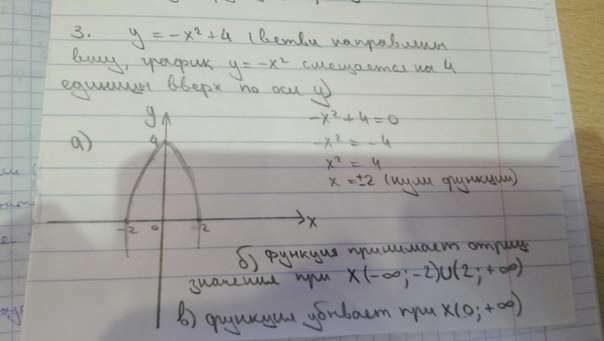 3. y = -x² + 4 (ветви направлены
вниз, график y = -x² смещается на 4
единицы вверх по оси y)
а)
y
4
-2
0
-2
x
-x² + 4 = 0
-x² = -4
x² = 4
x = ±2 (нули функции)
б) функция принимает отриц
значения при x(-∞; -2)∪(2; +∞)
в) функция убывает при x(0; +∞)